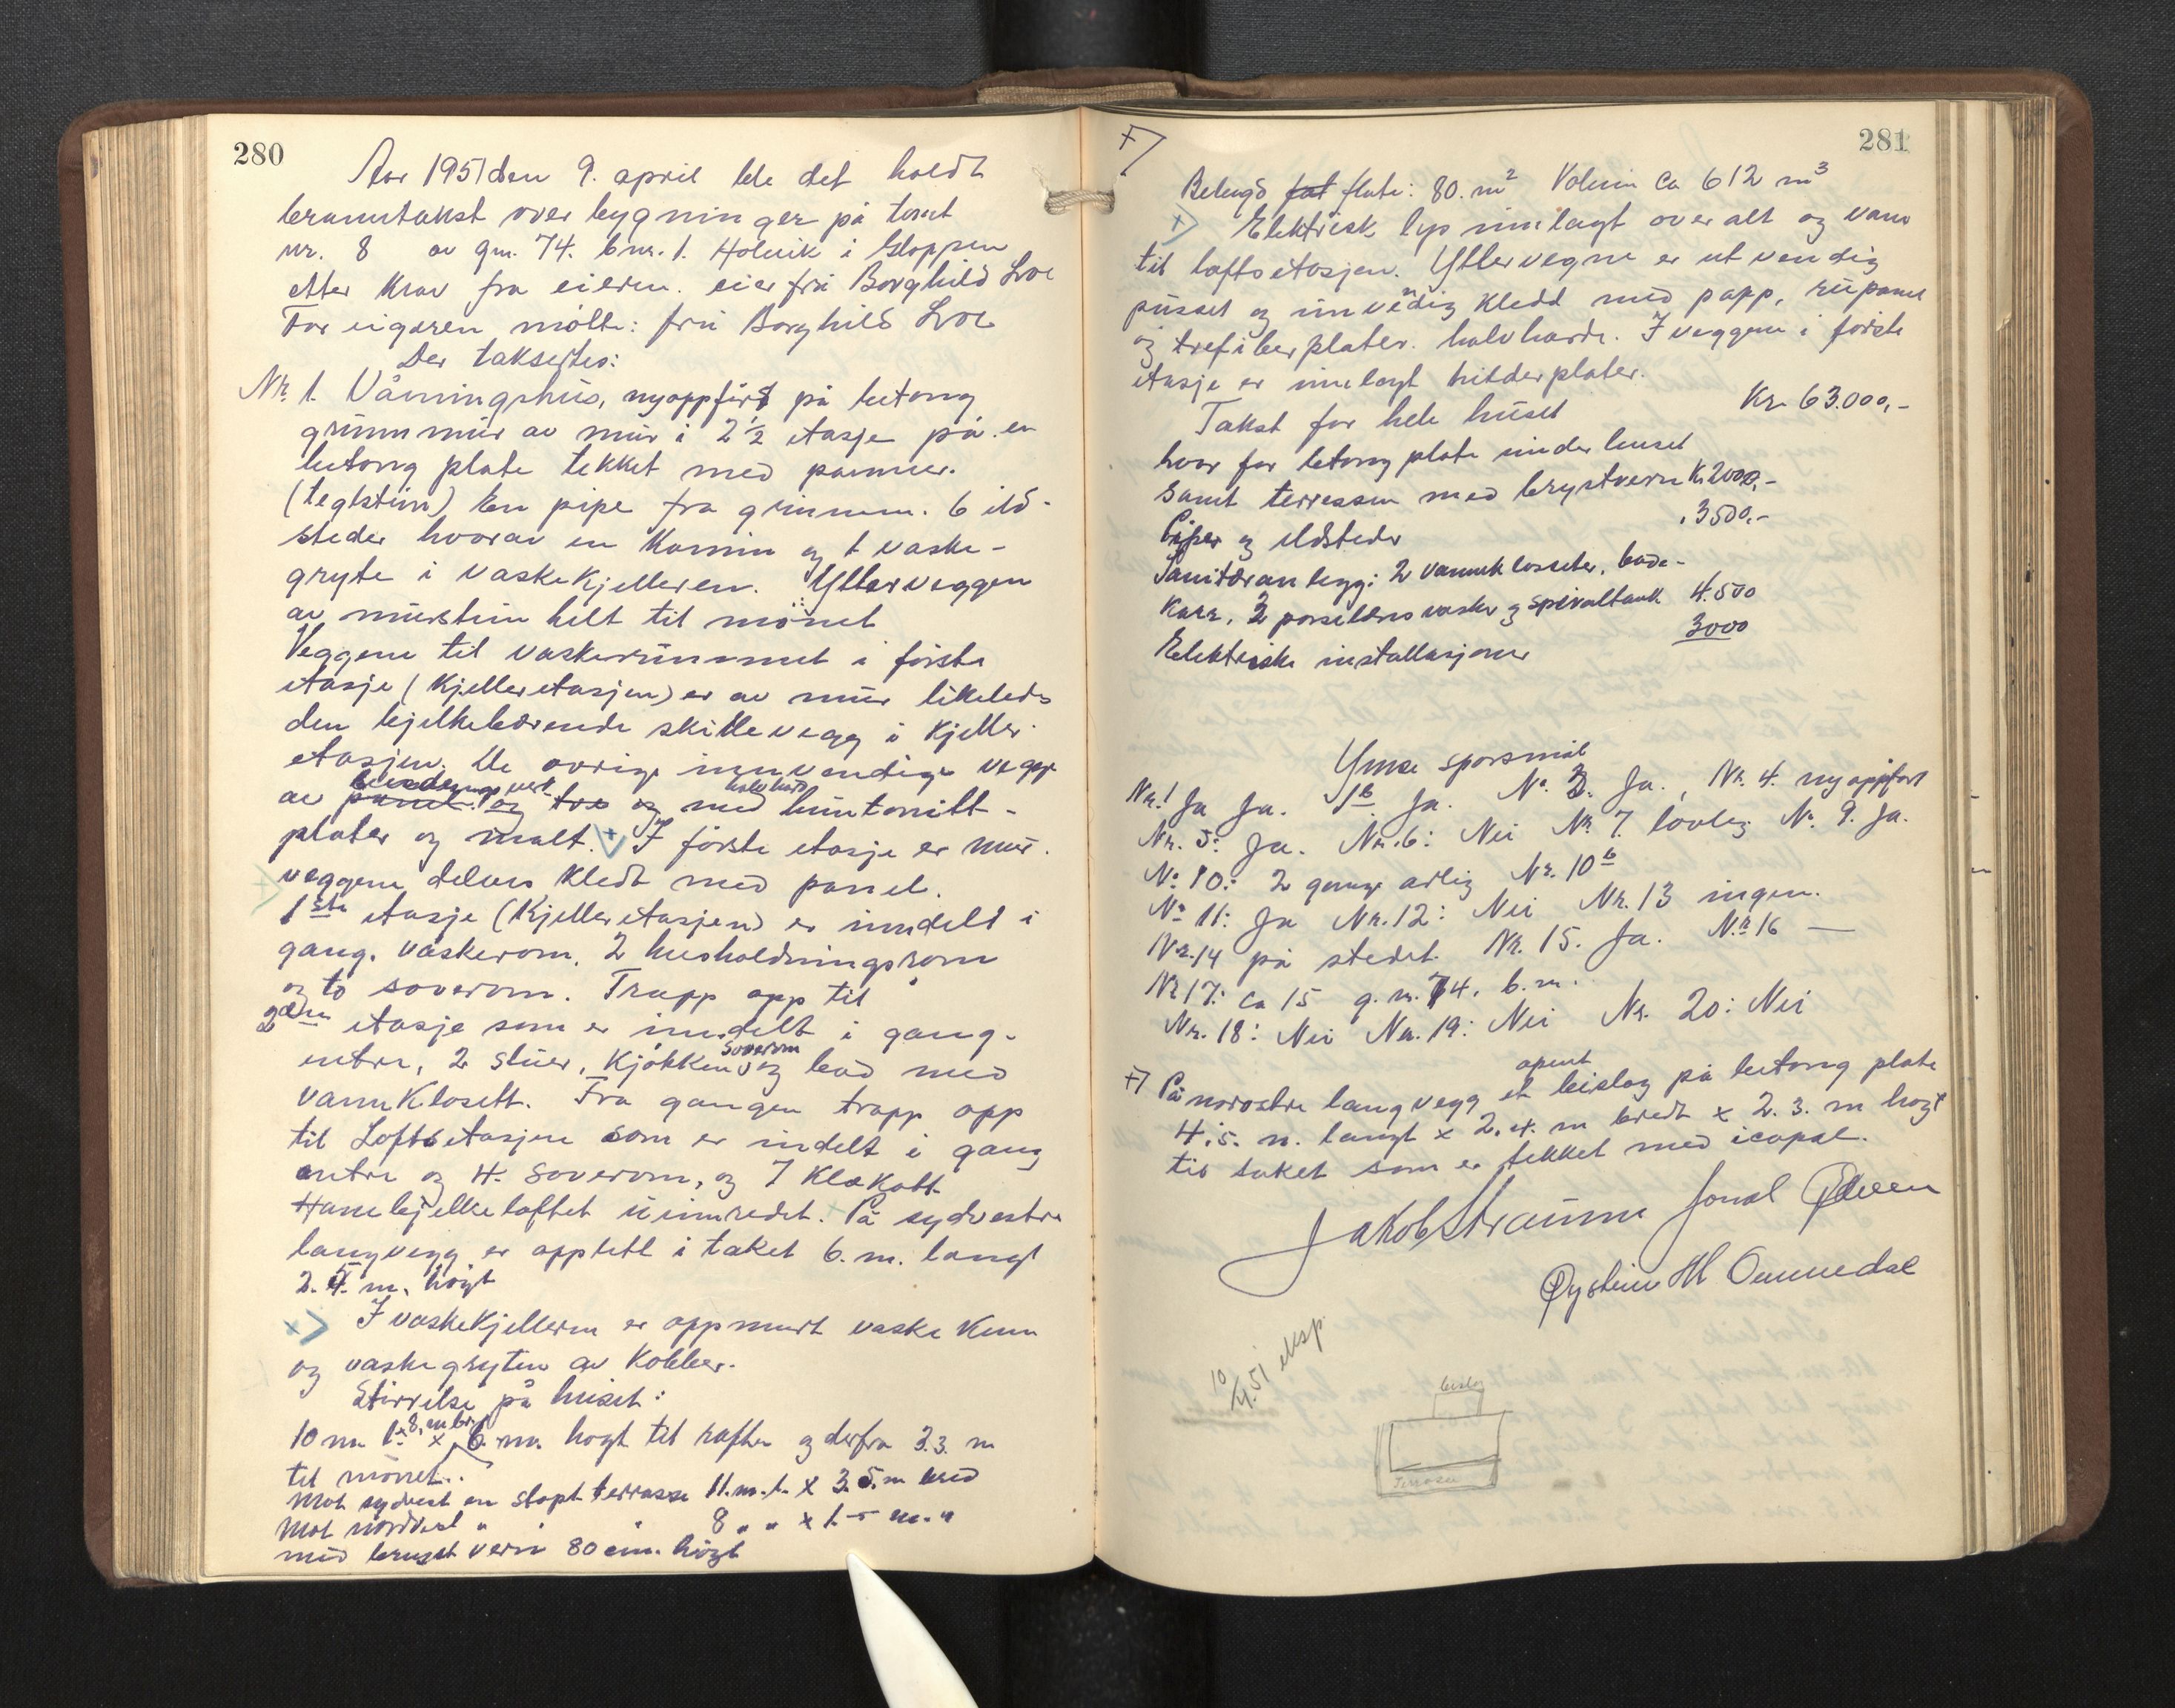 280
Aar 1951 den 9. april ble det holdt
branntakst over bygninger på tomt
nr. 8 av gnr. 74. bnr. 1. Holvik i Gloppen
etter krav fra eieren. eier frú Borghild Loe
For eigaren møtte: frú Borghild Loe
Der taksertes:
Nr. 1. Våningshús, nyoppført på betong
grúnnmúr av múr i 2 1/2 etasje på en
betong plate tekket med panner.
(teglstein) En pipe fra grúnnen. 6 ild-
steder hvorav en Kamin og 1 vaske-
gryte i vaskekjelleren. Ytterveggen
av múrstein helt til mønet
Veggene til vaskerúmmet i første
etasje (Kjelleretasjen) er av múr likeleds
den bjelkebærende skillevegg i Kjeller-
etasjen. De øvrige innvendige vegge
av panel. bindingsverk og tre og med halvhard húntonitt-
plater og malt. I første etasje er múr-
veggene delvis kledt med panel.
1ste etasje (Kjelleretasjen) er inndelt i
gang. vaskerom, 2 husholdningsrom
og to soverom. Trapp opp til
2den etasje som er inndelt i gang-
entre, 2 stúer, Kjøkken soverom og bad med
vannklosett. Fra gangen trapp opp
til Loftsetasjen som er indelt i gang
entre og 4. soverom, og 7 Klekott.
Hanebjelkeloftet úinnredet. På sydvestre
langvegg er opplett i taket 6. m. langt
2.4. m. høgt
I vaskekjelleren er oppmurt vaske kum
og vaskegryten av Kobber.
Størrelse på húset:
10 m l. x 8. m br. x 6. m. høgt til raften og derfra 3.3. m
til mønet.
Mot sydvest en støpt terrasse 11. m. l. x 3.5. m bred
Mot nordvest " " 8 " " x 1.5 m. "
med brystvern 80 cm. høgt
281
Bebygd fat flate: 80. m² Volum ca 612 m³
Elektrisk lys innlagt over alt og vann
til loftsetasjen. Yttervegne er utvendig
pússet og innvendig kledd med papp, rúpanel
og trefiberplater. halvharde. I veggene i første
etasje er innlagt
Takst for hele húset Kr 63.000,-
hvor for betong plate únder húset
samt terrassen med brystvern Kr. 2000,-
Piper og ildsteder " 3500.-
Sanitæranlegg: 2 vannklosseter, bade-
kar, 2 porselens vasker og spiraltank 4.500
Elektriske installasjoner 3000
Ymse spørsmål
Nr. 1 Ja Ja. 1b Ja. Nº. 2. Ja., Nr. 4. nyoppført
Nr. 5: Ja. Nr. 6: Nei Nr 7. lovleg Nº. 9. Ja.
Nº 10: 2 gange årlig Nr. 10b
Nº 11: Ja Nr. 12: Nei Nr. 13 ingen.
Nr. 14 på stedet. Nr. 15. Ja. Nr. 16 —
Nr 17: ca 15 g. nr. 74. b. nr.
Nr. 18: Nei Nr. 19: Nei Nr. 20: Nei
På norøstre langvegg et åpent bislag på betong plate
4.5. m. langt x 2.4. m bredt x 2.3. m høgt
til taket som er tekket med icopal.
Jakob Straume Jonal
Øystein M Ommedal
10/4.51 eksp
bislag
Terrasse